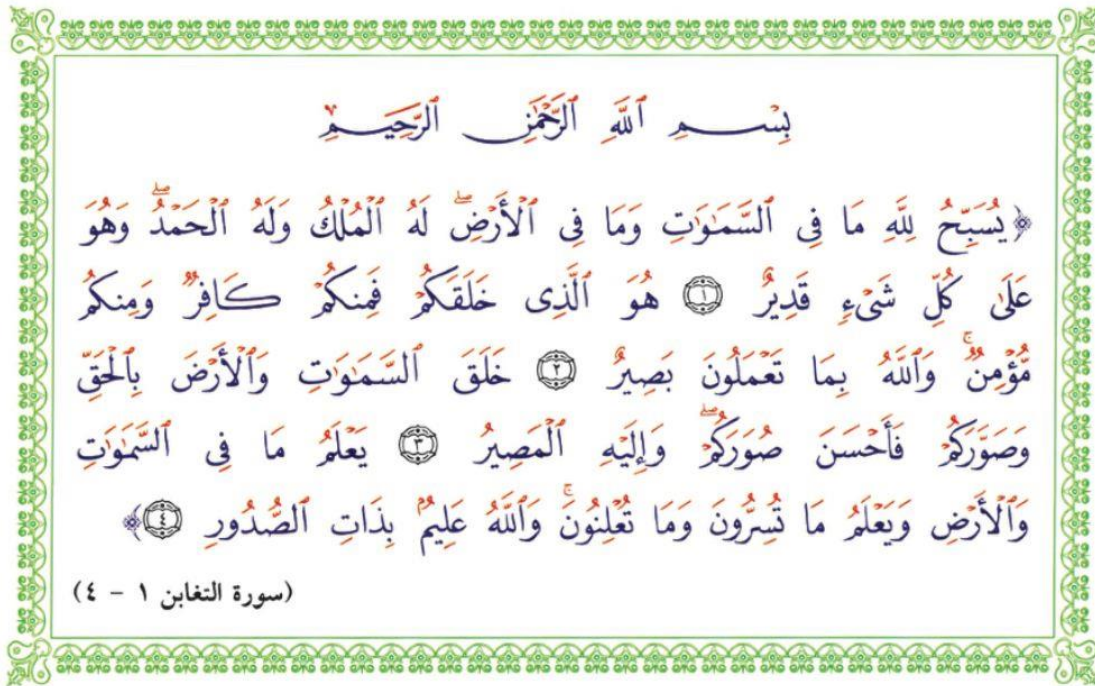 بِسْمِ ٱللَّهِ ٱلرَّحْمَٰنِ ٱلرَّحِيمِ
﴿يُسَبِّحُ لِلَّهِ مَا فِى ٱلسَّمَٰوَٰتِ وَمَا فِى ٱلْأَرْضِۖ لَهُ ٱلْمُلْكُ وَلَهُ ٱلْحَمْدُۖ وَهُوَ
عَلَىٰ كُلِّ شَىْءٍ قَدِيرٌ ١ هُوَ ٱلَّذِى خَلَقَكُمْ فَمِنكُمْ كَافِرٌ وَمِنكُم
مُّؤْمِنٌۚ وَٱللَّهُ بِمَا تَعْمَلُونَ بَصِيرٌ ٢ خَلَقَ ٱلسَّمَٰوَٰتِ وَٱلْأَرْضَ بِٱلْحَقِّ
وَصَوَّرَكُمْ فَأَحْسَنَ صُوَرَكُمْۖ وَإِلَيْهِ ٱلْمَصِيرُ ٣ يَعْلَمُ مَا فِى ٱلسَّمَٰوَٰتِ
وَٱلْأَرْضِ وَيَعْلَمُ مَا تُسِرُّونَ وَمَا تُعْلِنُونَۚ وَٱللَّهُ عَلِيمٌۢ بِذَاتِ ٱلصُّدُورِ ٤﴾
(سورة التغابن ١ - ٤)